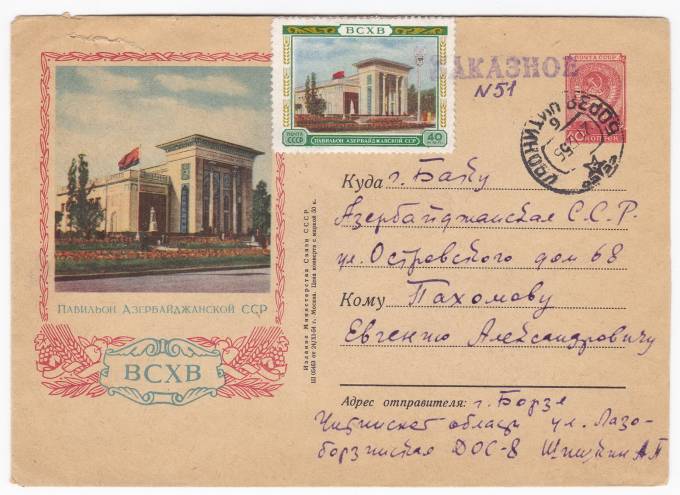 ВСХВ
ПОЧТА СССР
ПАВИЛЬОН АЗЕРБАЙДЖАНСКОЙ ССР
40
ЗАКАЗНОЕ
N51
ПОЧТА СССР
40 КОПЕЕК
БОРЗЯ ЧИТИНСКОЙ
СССР
Куда г. Баку
Азербайджанская С.С.Р.
ул. Островского дом 68
Кому Пахомову
Евгению Александровичу
Адрес отправителя: г. Борзя
Читинской области ул. Лазо-
борзинская ДОС-8 Шишкин А П
Издание Министерства Связи СССР
Ш 05463 от 24/XI-54 г. Москва. Цена конверта с маркой 50 к.
ПАВИЛЬОН АЗЕРБАЙДЖАНСКОЙ ССР
ВСХВ